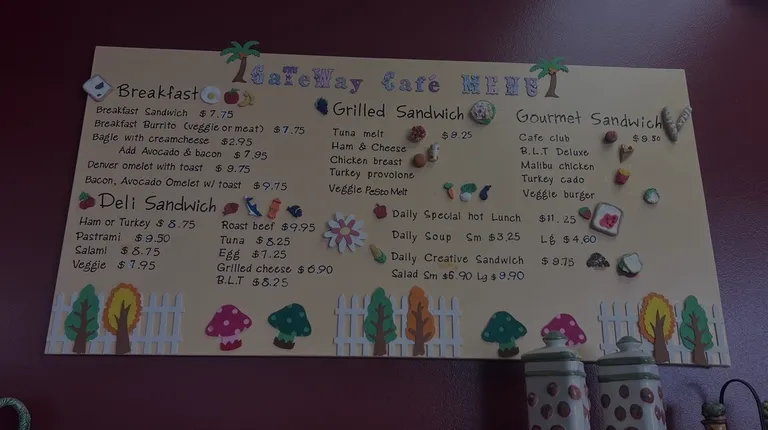 GaTeWay Café MENU
Breakfast
Breakfast Sandwich $7.75
Breakfast Burrito (veggie or meat) $7.75
Bagle with creamcheese $2.95
Add Avocado & bacon $7.95
Denver omelet with toast $9.75
Bacon, Avocado Omelet w/ toast $9.75
Deli Sandwich
Ham or Turkey $8.75
Pastrami $9.50
Salami $8.75
Veggie $7.95
Roast beef $9.95
Tuna $8.25
Egg $7.25
Grilled cheese $6.90
B.L.T $8.25
Grilled Sandwich
Tuna melt $9.25
Ham & Cheese
Chicken breast
Turkey provolone
Veggie Pesto Melt
Gourmet Sandwich
Cafe club $9.50
B.L.T Deluxe
Malibu chicken
Turkey cado
Veggie burger
Daily Special hot Lunch $11.25
Daily Soup Sm $3.25 Lg $4.60
Daily Creative Sandwich $9.75
Salad Sm $6.90 Lg $9.90